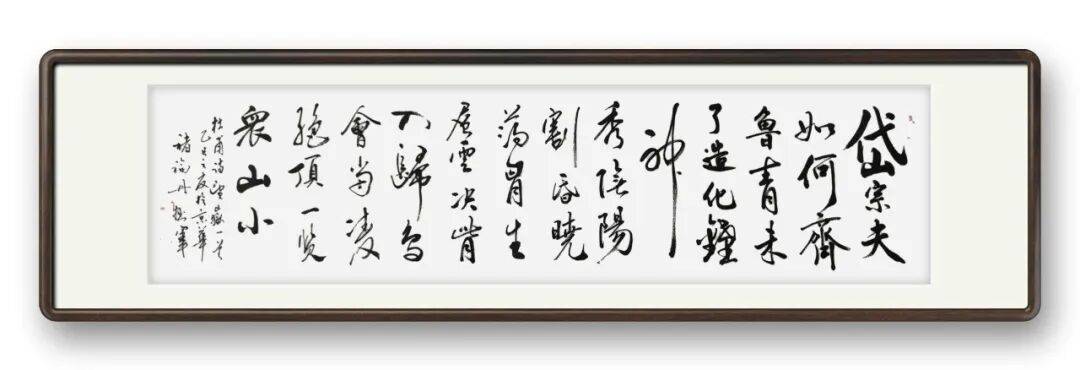 岱宗夫
如何齊
魯青未
了造化鍾
神
秀陰陽
割昏曉
蕩胷生
層雲决眥
入歸鳥
會當凌
絕頂一覽
衆山小
杜甫詩望嶽一首
乙巳之夏於京華